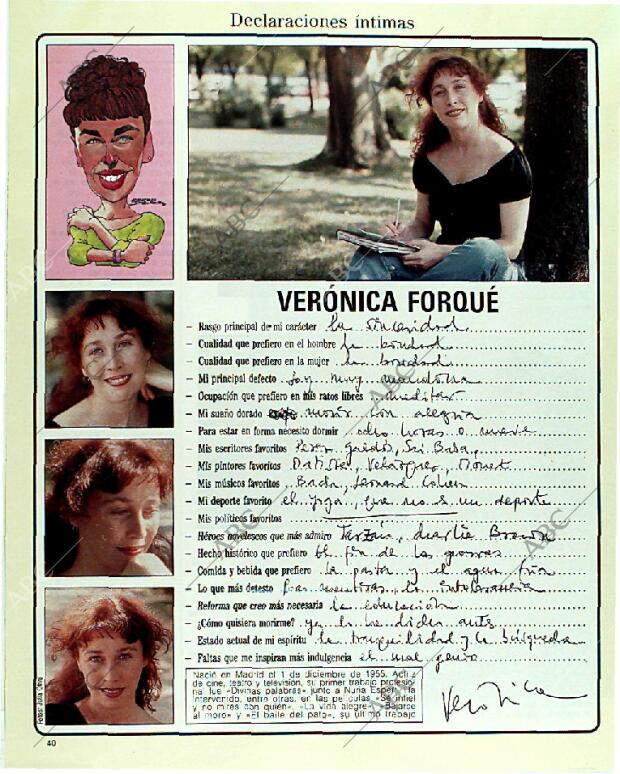 Declaraciones íntimas
VERÓNICA FORQUÉ
– Rasgo principal de mi carácter la sinceridad
– Cualidad que prefiero en el hombre la bondad
– Cualidad que prefiero en la mujer la bondad
– Mi principal defecto soy muy mandona
– Ocupación que prefiero en mis ratos libres meditar
– Mi sueño dorado morir con alegría
– Para estar en forma necesito dormir ocho horas o nueve
– Mis escritores favoritos Pérez Galdós, Sai Baba,
– Mis pintores favoritos Velázquez, Monet
– Mis músicos favoritos Bach, Leonard Cohen
– Mi deporte favorito el yoga, que no es un deporte
– Mis políticos favoritos
– Héroes novelescos que más admiro Tarzán, Charlie Brown
– Hecho histórico que prefiero El fin de las guerras
– Comida y bebida que prefiero la pasta y el agua fría
– Lo que más detesto las mentiras, la intolerancia
– Reforma que creo más necesaria la educación
– ¿Cómo quisiera morirme? ya lo he dicho antes
– Estado actual de mi espíritu la tranquilidad y la búsqueda
– Faltas que me inspiran más indulgencia el mal genio
Nació en Madrid el 1 de diciembre de 1955. Actriz
de cine, teatro y televisión, su primer trabajo profesio-
nal fue «Divinas palabras» junto a Nuria Espert. Ha
intervenido, entre otras, en las películas «Sé infiel
y no mires con quién», «La vida alegre», «Bajarse
al moro» y «El baile del pato», su último trabajo
Verónica
40
ABC